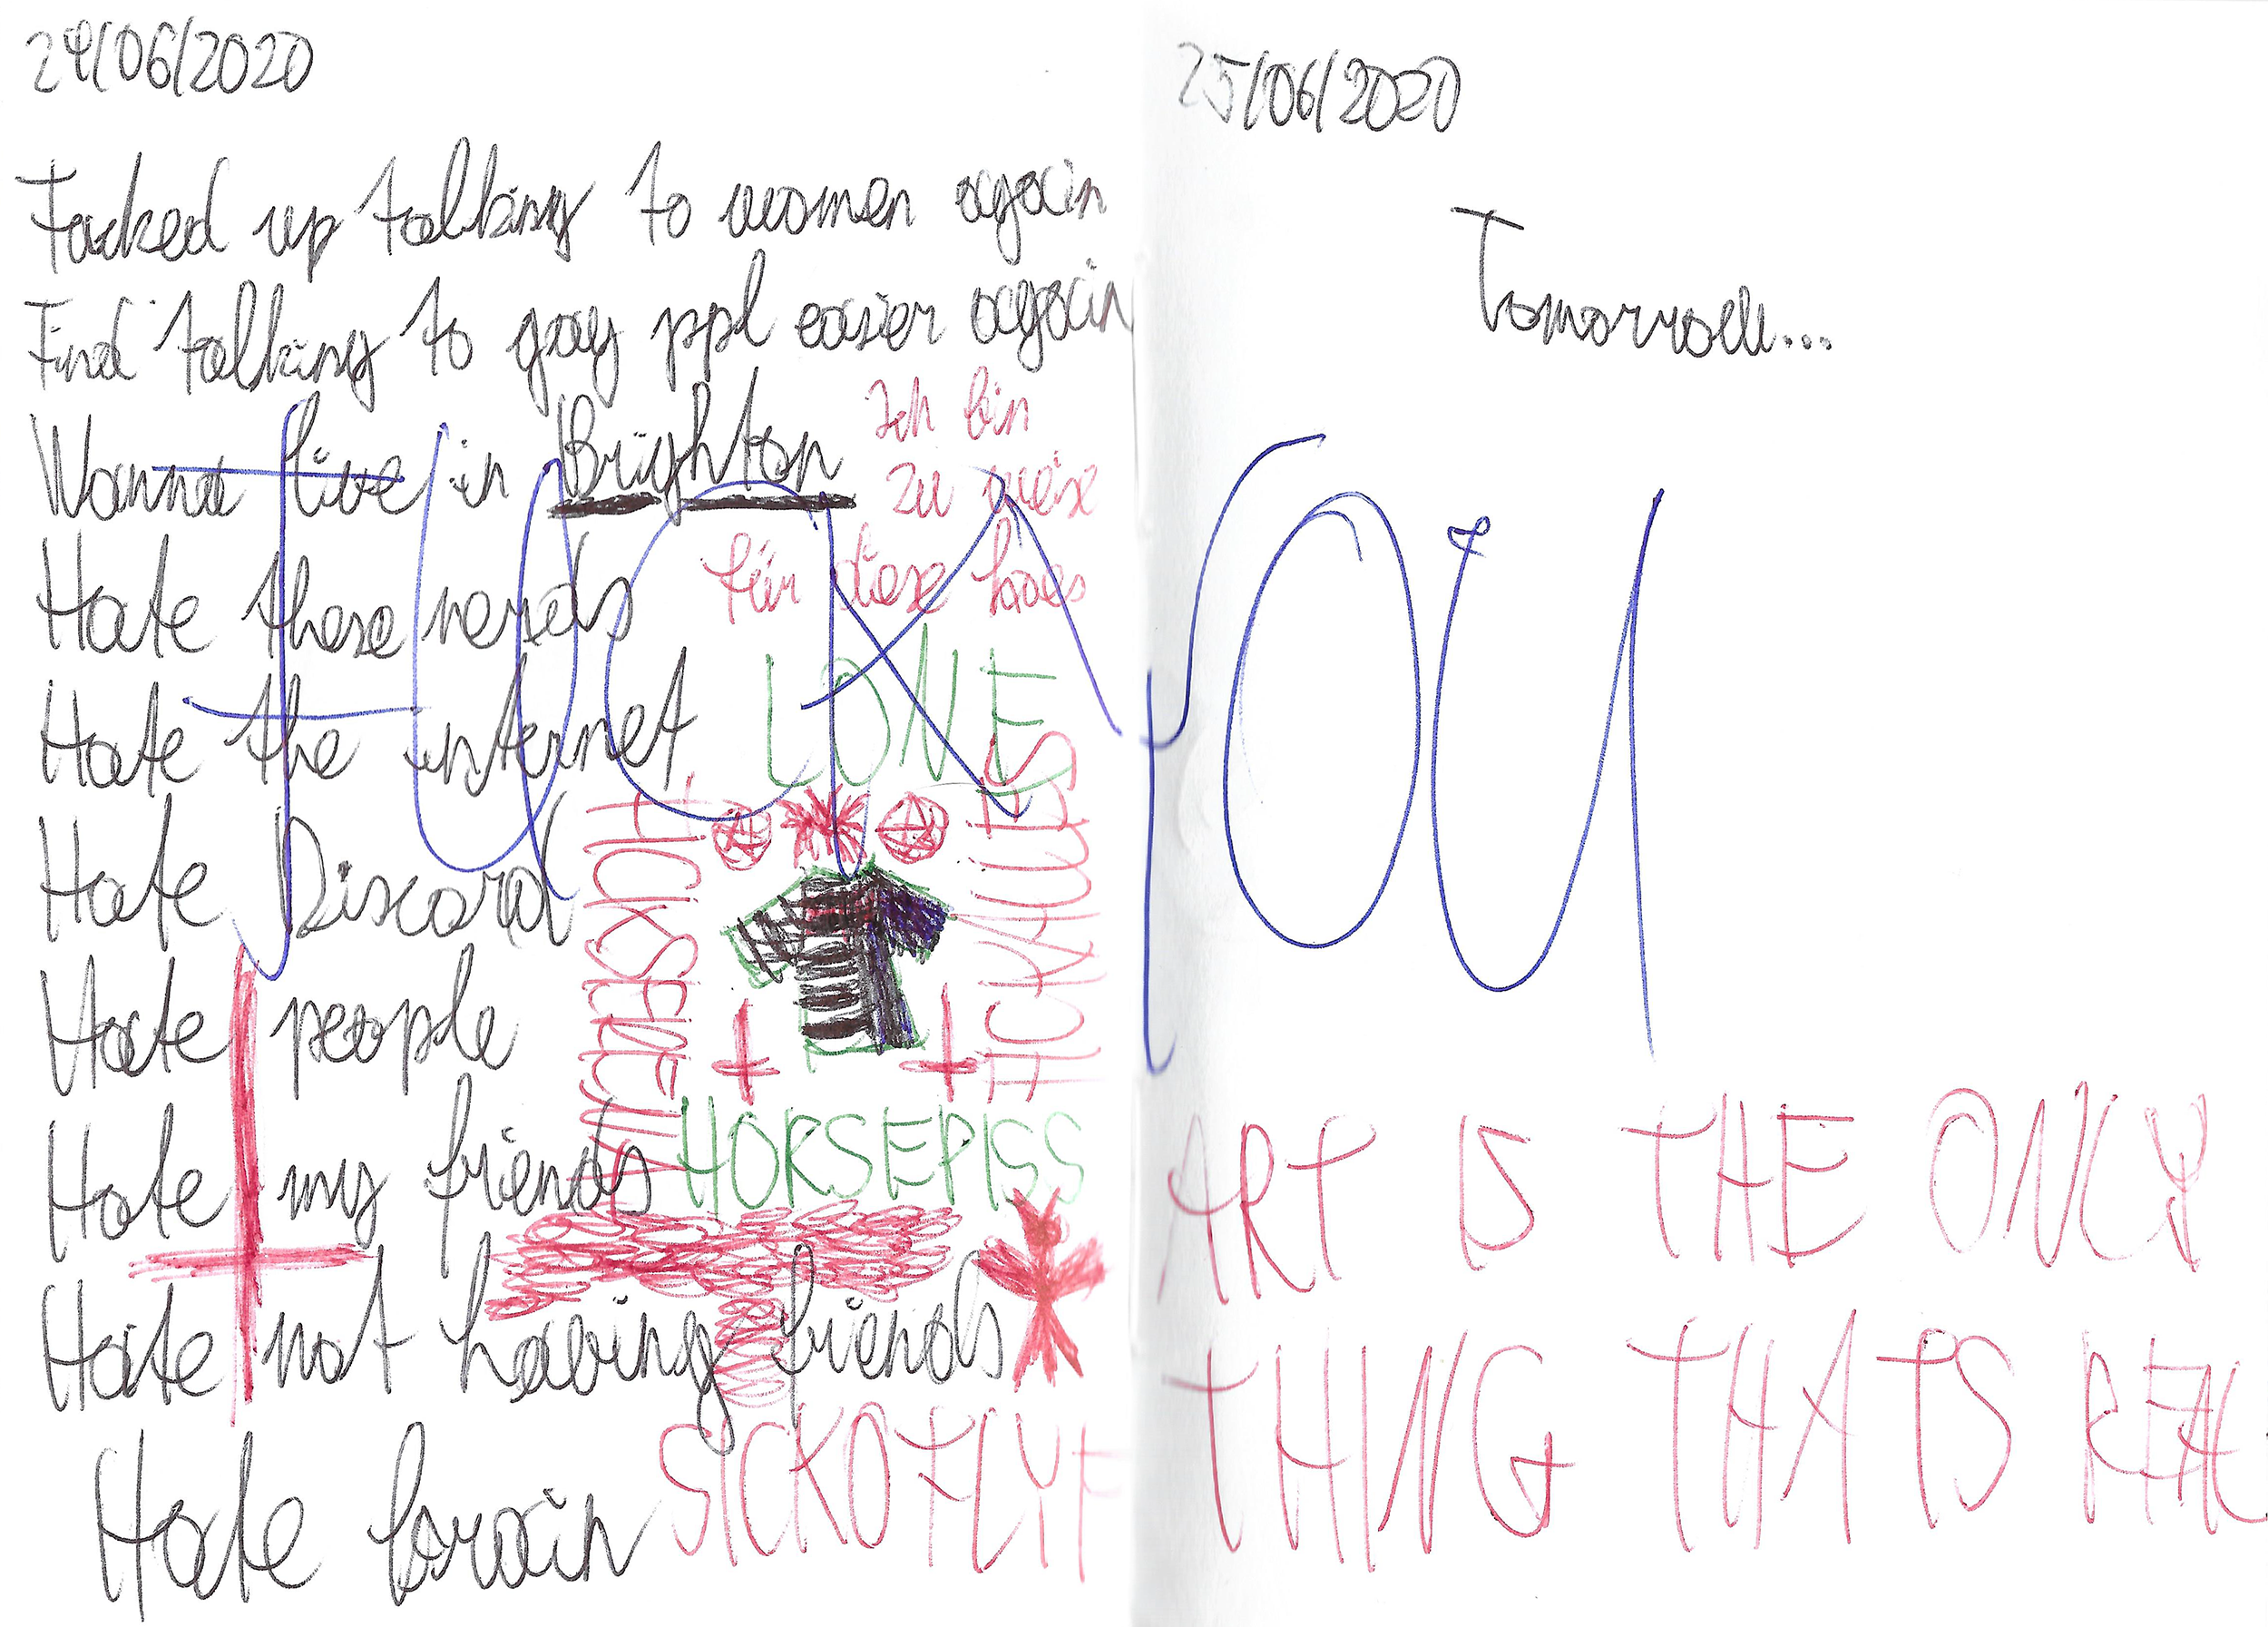 24/06/2020
Fucked up talking to women again
Find talking to gay ppl easier again
Wanna live in Brighton
Hate these nerds
Hate the internet
Hate Discord
Hate people
Hate my friends
Hate not having friends
Hate brain
Ich bin
zu weise
für diese hoes
LONE
HORSEPISS
SICKOFLYF
FUCK YOU
25/06/2020
Tomorrow...
ART IS THE ONLY
THING THATS REAL